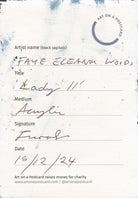 ART ON A POSTCARD
Artist name (block capitals)
FAYE ELEANOR WOODS
Title
'Lady II'
Medium
Acrylic
Signature
Date
16/12/24
Art on a Postcard raises money for charity
www.artonapostcard.com / @artonapostcard